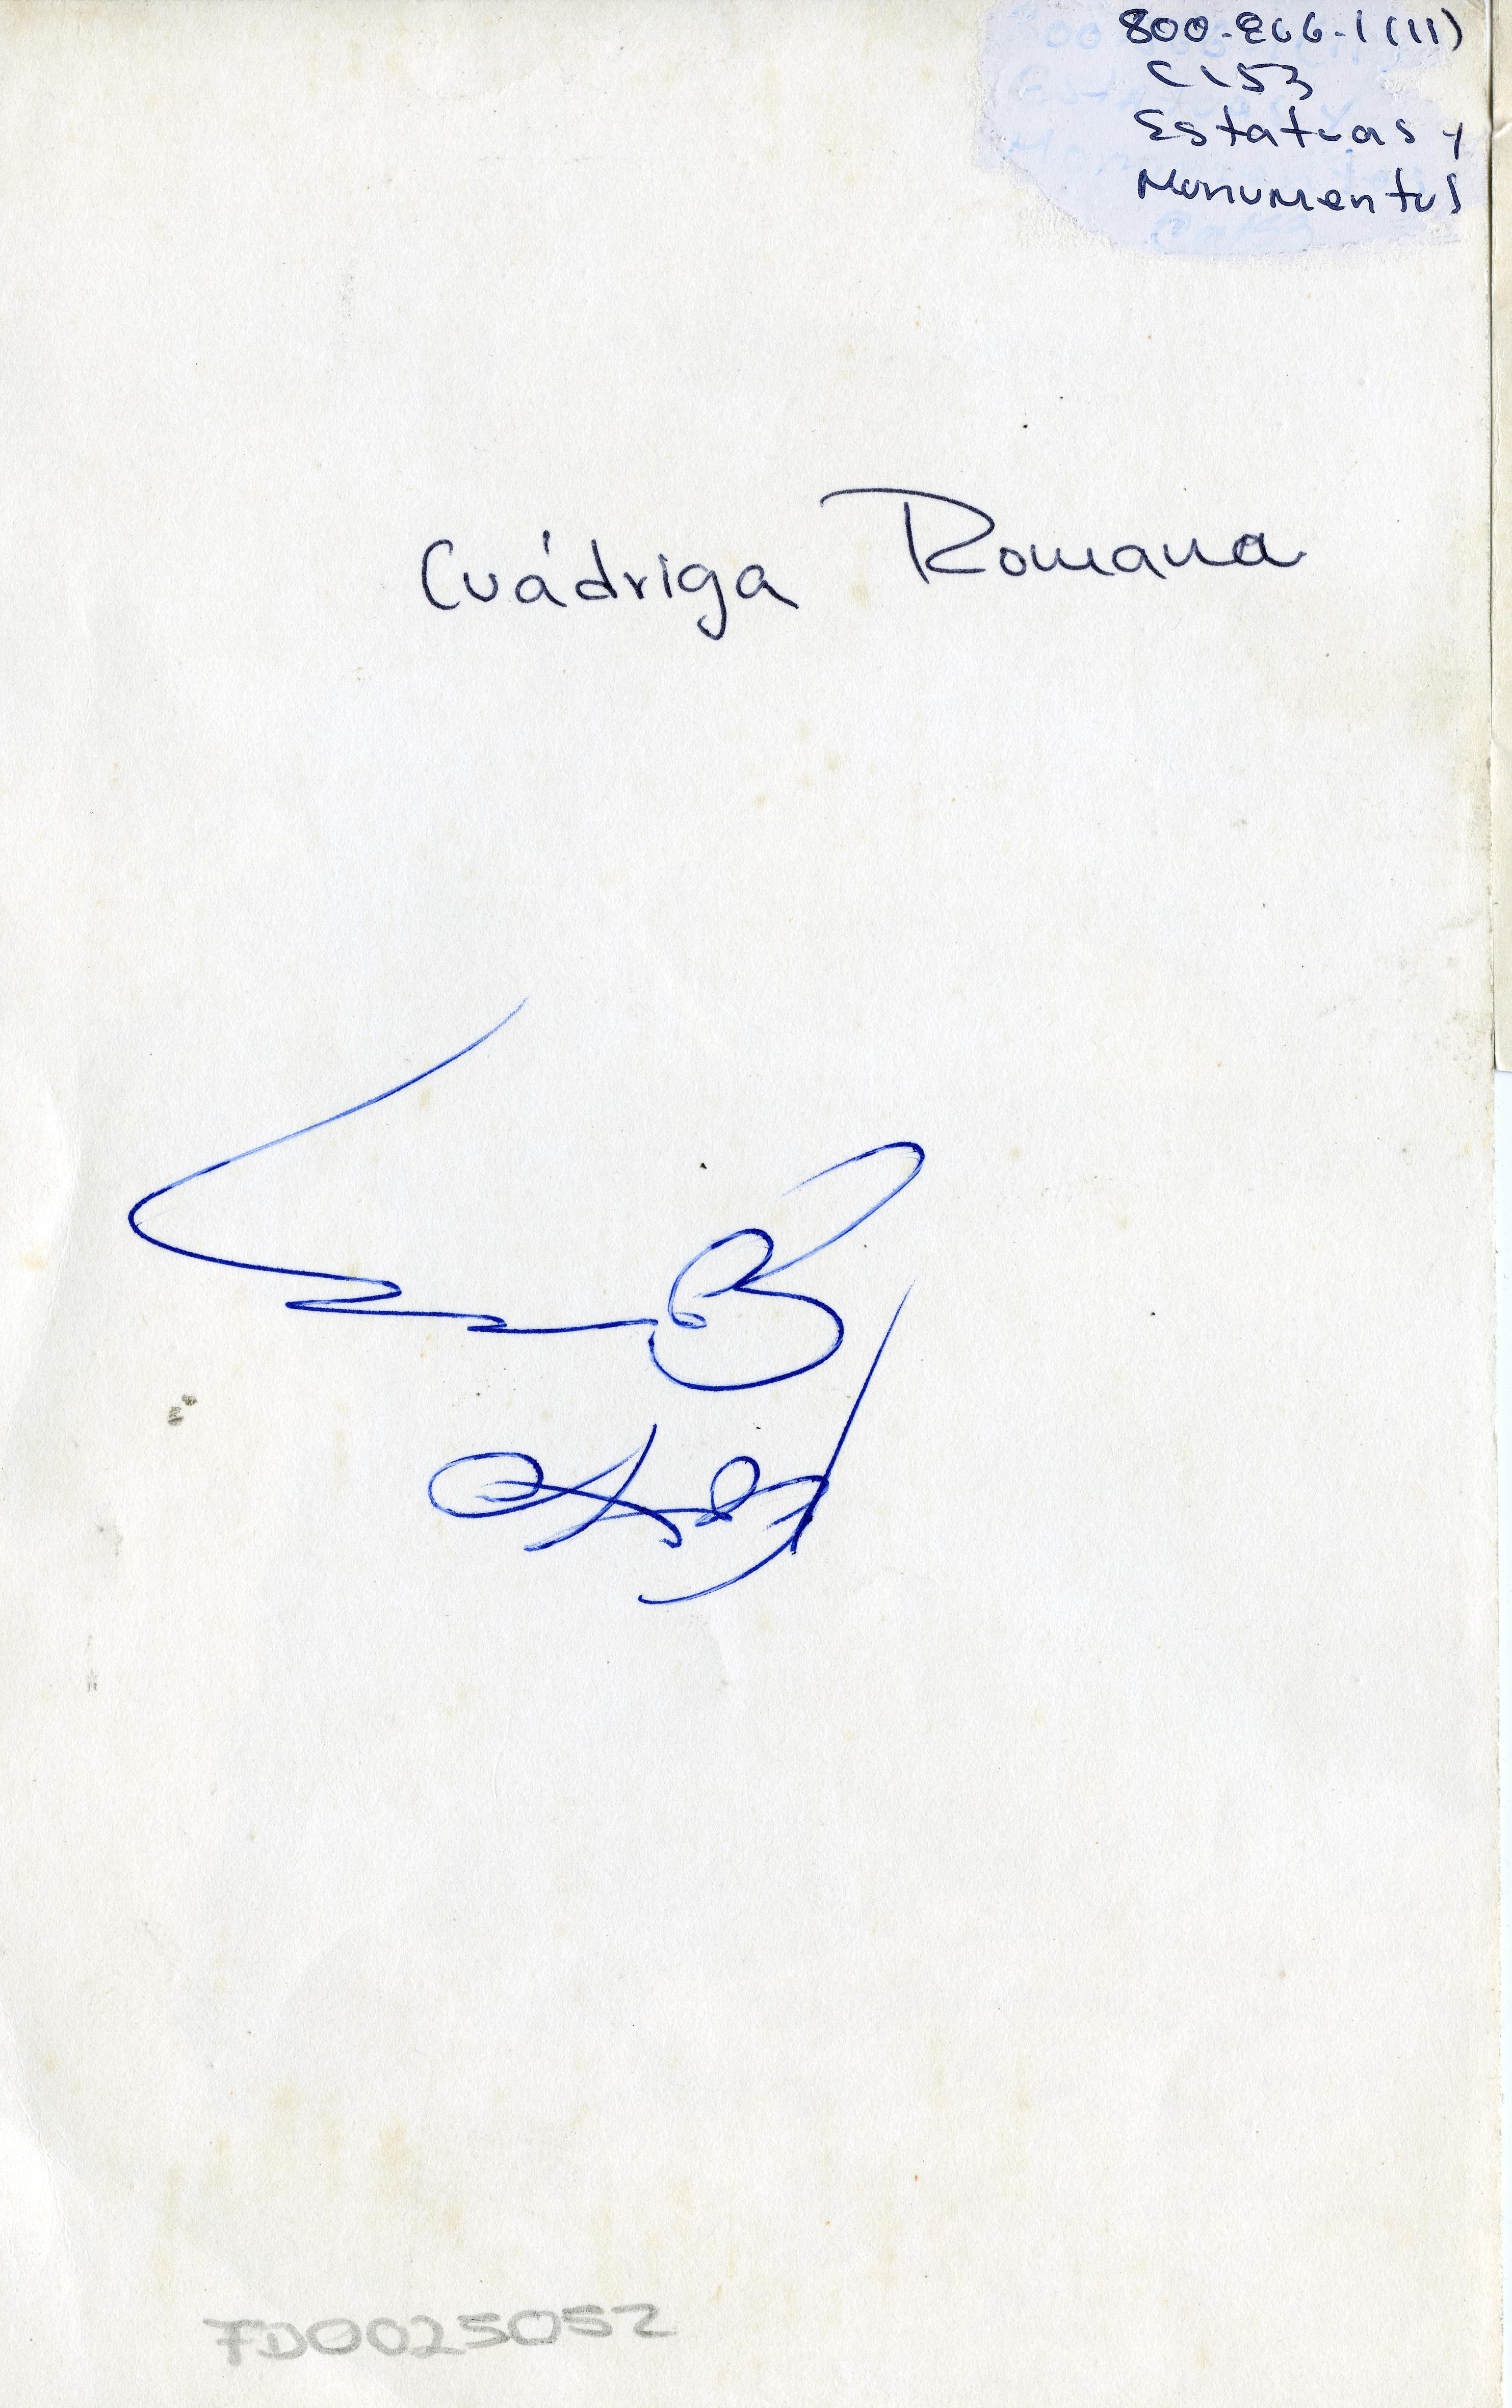 800-866-1(11)
C153
Estatuas y
Monumentos
Cuádriga Romana
FD0025052